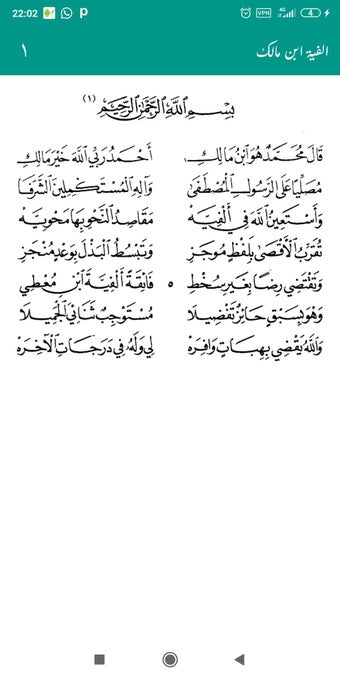 22:02 VPN 4G 4
١ الفية ابن مالك
بِسْمِ اللَّهِ الرَّحْمَنِ الرَّحِيمِ (١)
قَالَ مُحَمَّدٌ هُوَ ابْنُ مَالِكِ أَحْمَدُ رَبِّي اللَّهَ خَيْرَ مَالِكِ
مُصَلِّيًا عَلَى الرَّسُولِ الْمُصْطَفَى وَآلِهِ الْمُسْتَكْمِلِينَ الشَّرَفَا
وَأَسْتَعِينُ اللَّهَ فِي أَلْفِيَّهْ مَقَاصِدُ النَّحْوِ بِهَا مَحْوِيَّهْ
تُقَرِّبُ الْأَقْصَى بِلَفْظٍ مُوجَزِ وَتَبْسُطُ الْبَذْلَ بِوَعْدٍ مُنْجَزِ
وَتَقْتَضِي رِضًا بِغَيْرِ سُخْطِ ٥ فَائِقَةً أَلْفِيَّةَ ابْنِ مُعْطِي
وَهْوَ بِسَبْقٍ حَائِزٌ تَفْضِيلَا مُسْتَوْجِبٌ ثَنَائِيَ الْجَمِيلَا
وَاللَّهُ يَقْضِي بِهِبَاتٍ وَافِرَهْ لِي وَلَهُ فِي دَرَجَاتِ الْآخِرَهْ